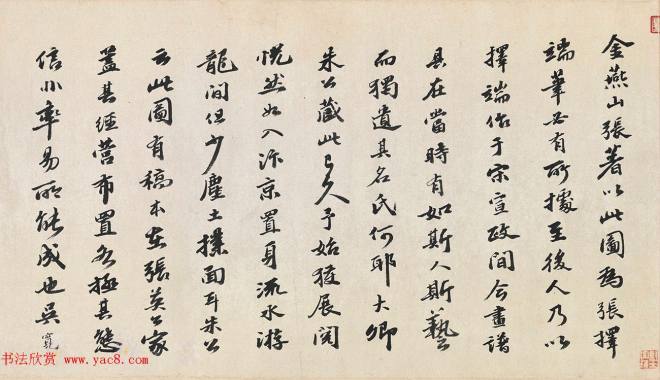 金燕山張著以此圖為張擇
端筆必有所據至後人乃以
擇端作于宋宣政間今畫譜
具在當時有如斯人斯藝
而獨遺其名氏何耶大卿
朱公藏此已久予始獲展閱
恍然如入汴京置身流水游
龍間但少塵土撲面耳朱公
云此圖有稿本在張英公家
蓋其經營布置各極其態
信非率易所能成也吳寬
书法欣赏 www.yac8.com